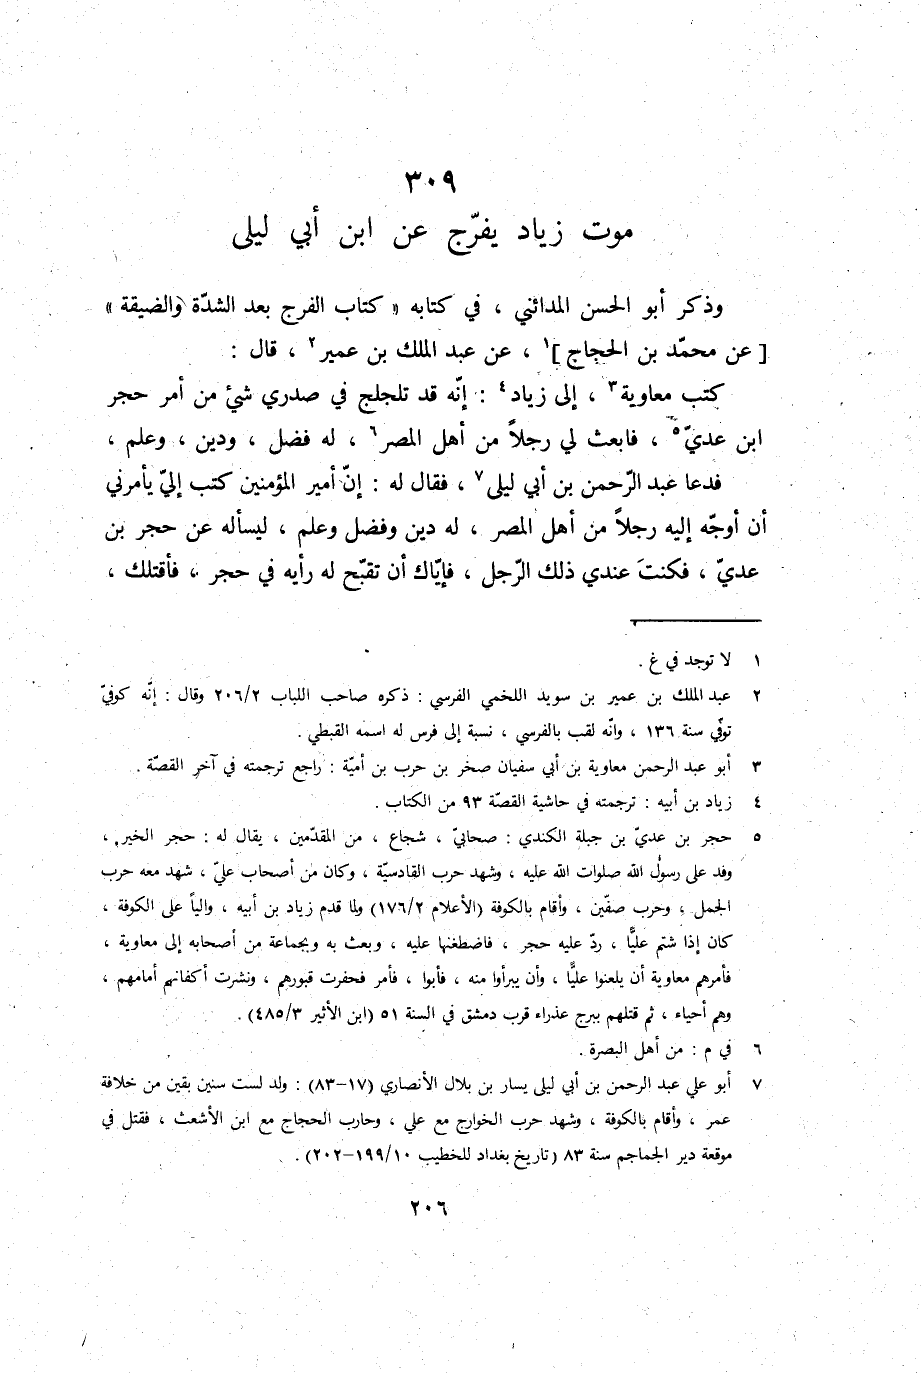 ٣٠٩
موت زياد يفرّج عن ابن أبي ليلى
وذكر أبو الحسن المدائني ، في كتابه « كتاب الفرج بعد الشدّة والضيقة »
[ عن محمّد بن الحجاج ]١ ، عن عبد الملك بن عمير٢ ، قال :
كتب معاوية٣ ، إلى زياد٤ : إنّه قد تلجلج في صدري شئ من أمر حجر
ابن عديّ٥ ، فابعث لي رجلاً من أهل المصر٦ ، له فضل ، ودين ، وعلم ،
فدعا عبد الرّحمن بن أبي ليلى٧ ، فقال له : إنّ أمير المؤمنين كتب إليّ يأمرني
أن أوجّه إليه رجلاً من أهل المصر ، له دين وفضل وعلم ، ليسأله عن حجر بن
عديّ ، فكنتَ عندي ذلك الرّجل ، فإيّاك أن تقبّح له رأيه في حجر ، فأقتلك ،
١ لا توجد في غ .
٢ عبد الملك بن عمير بن سويد اللخمي الفرسي : ذكره صاحب اللباب ٢٠٦/٢ وقال : إنّه كوفيّ
توفّي سنة ١٣٦ ، وانّه لقب بالفرسي ، نسبة إلى فرس له اسمه القبطي .
٣ أبو عبد الرحمن معاوية بن أبي سفيان صخر بن حرب بن أميّة : راجع ترجمته في آخر القصّة .
٤ زياد بن أبيه : ترجمته في حاشية القصّة ٩٣ من الكتاب .
٥ حجر بن عديّ بن جبلة الكندي : صحابيّ ، شجاع ، من المقدّمين ، يقال له : حجر الخير ،
وفد على رسول الله صلوات الله عليه ، وشهد حرب القادسيّة ، وكان من أصحاب عليّ ، شهد معه حرب
الجمل ، وحرب صفّين ، وأقام بالكوفة (الأعلام ١٧٦/٢) ولما قدم زياد بن أبيه ، والياً على الكوفة ،
كان إذا شتم عليًّا ، ردّ عليه حجر ، فاضطغنها عليه ، وبعث به وبجماعة من أصحابه إلى معاوية ،
فأمرهم معاوية أن يلعنوا عليًّا ، وأن يبرأوا منه ، فأبوا ، فأمر فحفرت قبورهم ، ونشرت أكفانهم أمامهم ،
وهم أحياء ، ثم قتلهم ببرج عذراء قرب دمشق في السنة ٥١ (ابن الأثير ٤٨٥/٣) .
٦ في م : من أهل البصرة .
٧ أبو علي عبد الرحمن بن أبي ليلى يسار بن بلال الأنصاري (١٧–٨٣) : ولد لست سنين بقين من خلافة
عمر ، وأقام بالكوفة ، وشهد حرب الخوارج مع علي ، وحارب الحجاج مع ابن الأشعث ، فقتل في
موقعة دير الجماجم سنة ٨٣ (تاريخ بغداد للخطيب ١٩٩/١٠–٢٠٢) .
٢٠٦